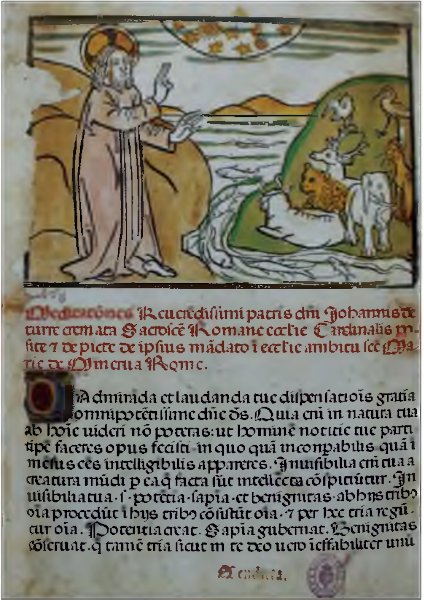 Meditatiões Reuerẽdissimi patris dñi Johannis de
turre cremata Sacrosc̃e Romane eccl'ie Cardinalis po
site & de picte de ipsius mãdato ĩ eccl'ie ambitu sc̃e Ma
rie de Minerua Rome.
Admirãda et laudanda tue dispensatiõis gratia
omnipotẽtissime dñe dṡ. Quia em̃ in natura tua
ab hoĩe videri nõ poteras: ut hominẽ noticie tue parti
cipẽ faceres opus fecisti: in quo quã incõpabilis quã ĩ
mẽsus eẽs intelligibilis appareres. Inuisibilia em̃ tua a
creatura mũdi p ea q̃ facta sũt intellecta cõspiciũtur. In
uisibilia tua s. potẽtia. sapiã. et benignitas. ab hijs tribꝰ
oĩa procedũt ĩ hijs tribꝰ cõsistũt oĩa. & per hec tria regũ
tur oĩa. Potentia creat. Sapiã gubernat. Benignitas
cõseruat. q̃ tamẽ tria sicut in te deo uero ĩeffabiliter unũ